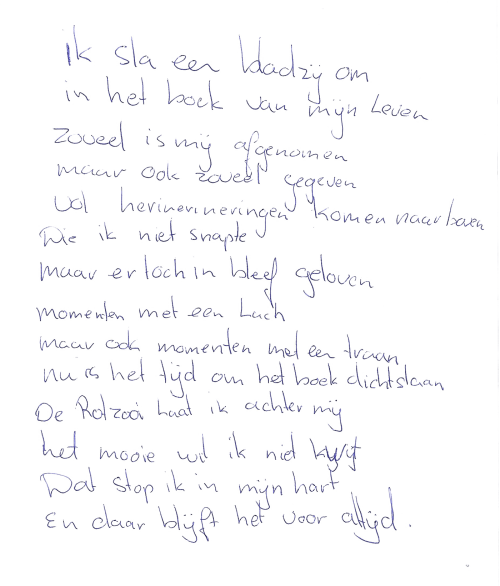 ik sla een bladzij om
in het boek van mijn Leven
zoveel is mij afgenomen
maar ook zoveel gegeven
vol herinerineringen komen naar boven
Die ik niet snapte
maar er toch in bleef geloven
momenten met een Lach
maar ook momenten met een traan
nu is het tijd om het boek dichtslaan
De Rotzooi laat ik achter mij
het mooie wil ik niet kwijt
Dat stop ik in mijn hart
En daar blijft het voor altijd.